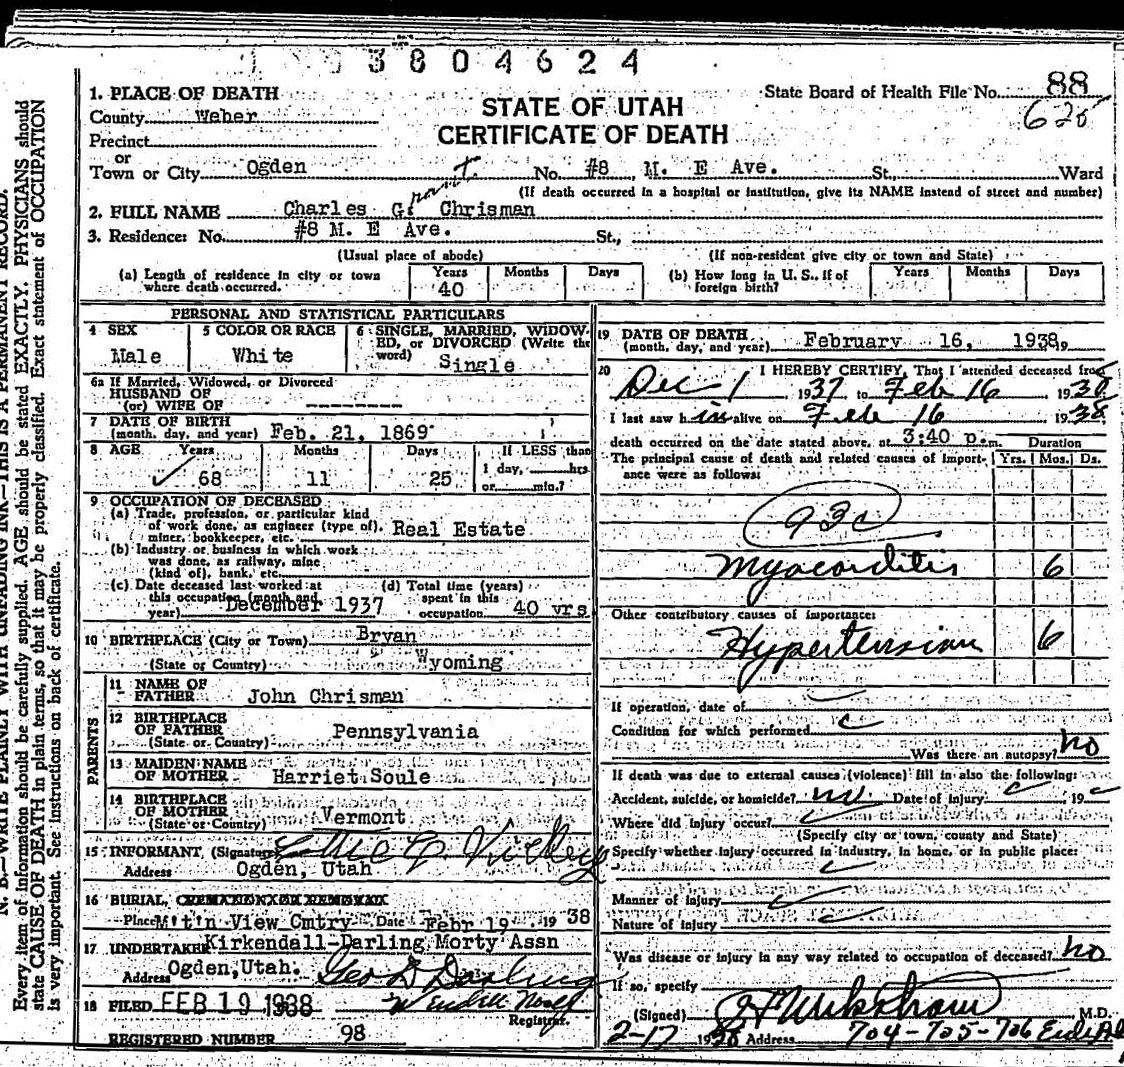 3804624
1. PLACE OF DEATH
County Weber
Precinct
or
Town or City Ogden
STATE OF UTAH
CERTIFICATE OF DEATH
State Board of Health File No. 88
625
No. #8 M. E Ave. St., Ward
(If death occurred in a hospital or institution, give its NAME instead of street and number)
rant
2. FULL NAME Charles G. Chrisman
3. Residence: No. #8 M. E Ave. St.,
(Usual place of abode) (If non-resident give city or town and State)
(a) Length of residence in city or town where death occurred. Years 40 Months Days
(b) How long in U. S., if of foreign birth? Years Months Days
PERSONAL AND STATISTICAL PARTICULARS
4 SEX Male
5 COLOR OR RACE White
6 SINGLE, MARRIED, WIDOWED, or DIVORCED (Write the word) Single
6a If Married, Widowed, or Divorced
HUSBAND OF
(or) WIFE OF --------
7 DATE OF BIRTH
(month, day, and year) Feb. 21, 1869
8 AGE Years 68 Months 11 Days 25 If LESS than 1 day, hrs. or min.?
9 OCCUPATION OF DECEASED
(a) Trade, profession, or particular kind of work done, as engineer (type of), miner, bookkeeper, etc. Real Estate
(b) Industry or business in which work was done, as railway, mine (kind of), bank, etc.
(c) Date deceased last worked at this occupation (month and year) December 1937
(d) Total time (years) spent in this occupation 40 yrs
10 BIRTHPLACE (City or Town) Bryan
(State or Country) Wyoming
PARENTS
11 NAME OF FATHER John Chrisman
12 BIRTHPLACE OF FATHER (State or Country) Pennsylvania
13 MAIDEN NAME OF MOTHER Harriet Soule
14 BIRTHPLACE OF MOTHER (State or Country) Vermont
15 INFORMANT (Signature)
Address Ogden, Utah
16 BURIAL, CREMATION OR REMOVAL
Place Mt'n View Cmtry Date Febr 19 1938
17 UNDERTAKER Kirkendall-Darling Morty Assn
Address Ogden, Utah. Geo D Darling
18 FILED FEB 19 1938
Registrar.
REGISTERED NUMBER 98
19 DATE OF DEATH
(month, day, and year) February 16, 1938,
20 I HEREBY CERTIFY, That I attended deceased from
Dec 1 1937 to Feb 16 1938
I last saw him alive on Feb 16 1938
death occurred on the date stated above, at 3:40 p.m. Duration
The principal cause of death and related causes of importance were as follows: Yrs. Mos. Ds.
93c
Myocarditis 6
Other contributory causes of importance:
Hypertension 6
If operation, date of
Condition for which performed
Was there an autopsy? no
If death was due to external causes (violence) fill in also the following:
Accident, suicide, or homicide? no. Date of injury 19
Where did injury occur?
(Specify city or town, county and State)
Specify whether injury occurred in industry, in home, or in public place:
Manner of injury
Nature of injury
Was disease or injury in any way related to occupation of deceased? no
If so, specify
(Signed) M.D.
2-17 1938 Address 704-705-706
N. B.—WRITE PLAINLY WITH UNFADING INK—THIS IS A PERMANENT RECORD.
Every item of information should be carefully supplied. AGE should be stated EXACTLY. PHYSICIANS should
state CAUSE OF DEATH in plain terms, so that it may be properly classified. Exact statement of OCCUPATION
is very important. See instructions on back of certificate.